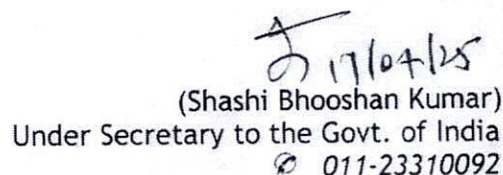 17/04/25
(Shashi Bhooshan Kumar)
Under Secretary to the Govt. of India
✆ 011-23310092